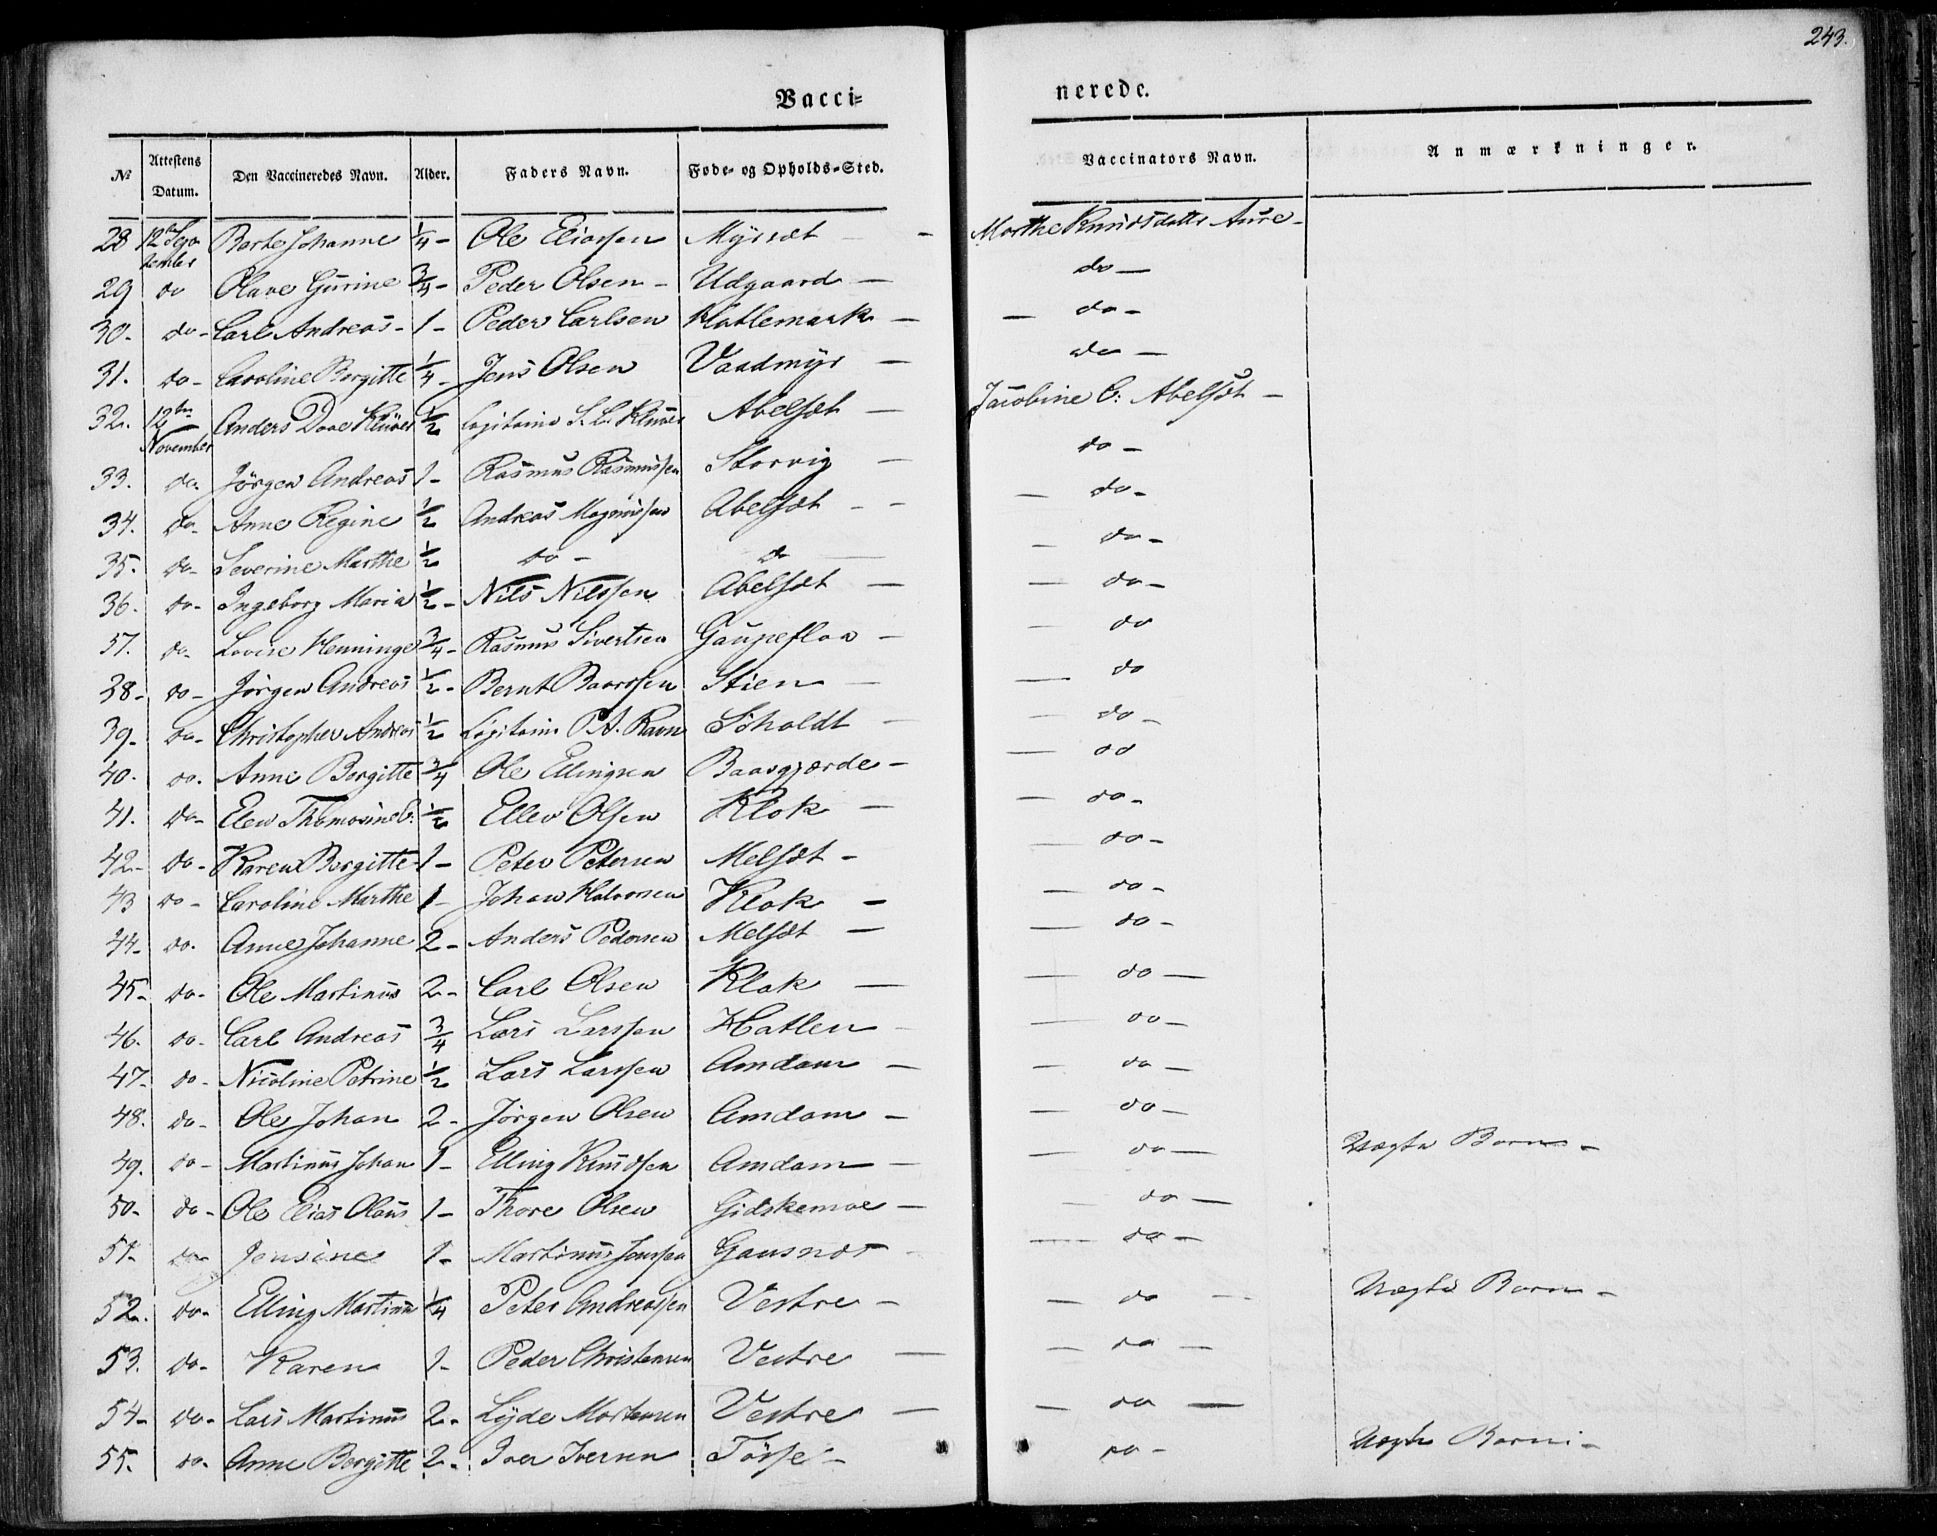 243.
Vacci=
nerede.
№ Attestens Datum. Den Vaccineredes Navn. Alder. Faders Navn. Føde- og Opholds-Sted. Vaccinators Navn. Anmærkninger.
28 12te September Berte Johanne 1/4 - Ole Eliassen Myrsæt - Marthe Knudsdatter Aure -
29 do Olave Gurine 3/4 - Peder Olsen - Udgaard - do -
30. do - Carl Andreas - 1 - Peder Carlsen Hatlemark - - do -
31. do - Caroline Bergitte 1/4 - Jens Olsen Vaadmyr - do -
32. 12te November Anders Daae Klüver 1/2 Capitaine Klüver Abelsæt - Jacobine C: Abelsæt -
33. do. Jørgen Andreas 1 - Rasmus Rasmussen Storvig - do -
34. do - Anne Regine 1/2 Andreas Magnussen Abelsæt - - do -
35. do - Severine Marthe 1/2 do - do - do -
36. do - Ingeborg Maria 1/2 - Nils Nilssen Abelsæt - - do -
37. do - Lovise Henninge 3/4 - Rasmus Sivertsen Gaupefloa - - do
38 - do - Jørgen Andreas 1/2 - Bernt Baarssen Stien - - do
39 - do - Christopher Andreas 1/2 Capitaine P. A. Ravn Søholdt - - do -
40. do. Anne Bergitte 3/4 Ole Ellingsen Baasgjærde - - do
41. do - Elen Thomasine C. 1/2 Ellev Olsen Klok - - do -
42 - do - Karen Bergitte - 1 - Peter Petersen Melsæt - - do -
43 do - Caroline Marthe 1 - Johan Halvorsen Klok - - do -
44 - do. Anne Johanne 2 - Anders Pedersen Melsæt - - do -
45 - do - Ole Martinus 2 - Carl Olsen Klok - - do -
46. do - Carl Andreas 3/4 Lars Larssen Hatlen - - do -
47 - do - Nicoline Petrine 1/2 Lars Larssen Amdam - - do -
48. do - Ole Johan 2 - Jørgen Olsen Amdam - - do -
49. do - Martinus Johan 1 - Elling Knudsen Amdam - - do - Uægte Barn -
50 - do - Ole Elias Olaus 1 - Thore Olsen Gidskemoe - - do -
51 - do - Jensine 1 - Martinus Jenssen Gausnæs - - do -
52. do - Elling Martinus 1/4 Peter Andreassen Vestre - - do - Uægte Barn -
53. do - Karen 1 - Peder Christensen Vestre - - do -
54 - do - Lars Martinus 2 - Lyder Mortensen Vestre - - do -
55 - do - Anne Bergitte 2 - Iver Iversen Tøsse - do - Uægte Barn -